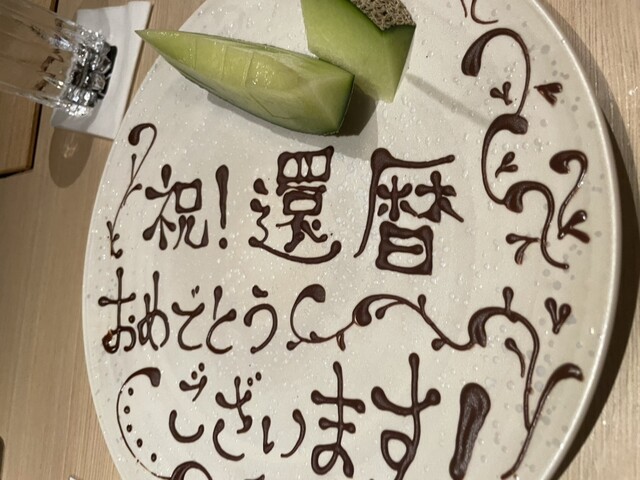 祝！還暦
おめでとう
ございます！